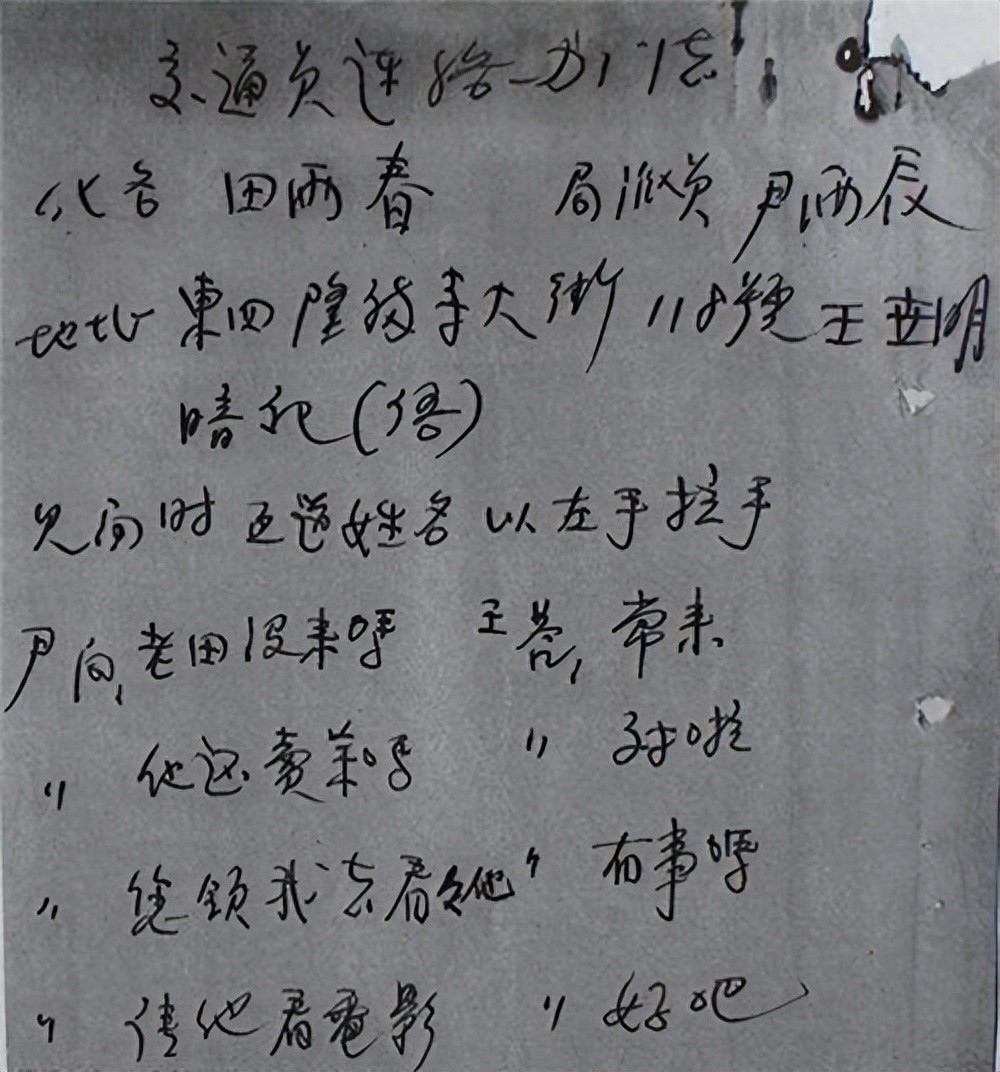 交通员连络办法
代名 田雨春 局派员 尹雨辰
地址 東四隆福寺大街118號王亜明
暗记(语)
见面时互道姓名以左手拉手
尹问,老田没来吗 王答,常来
〃 他还賣菜吗 〃 对啦
〃 您领我去看看他 〃 有事吗
〃 请他看電影 〃 好吧